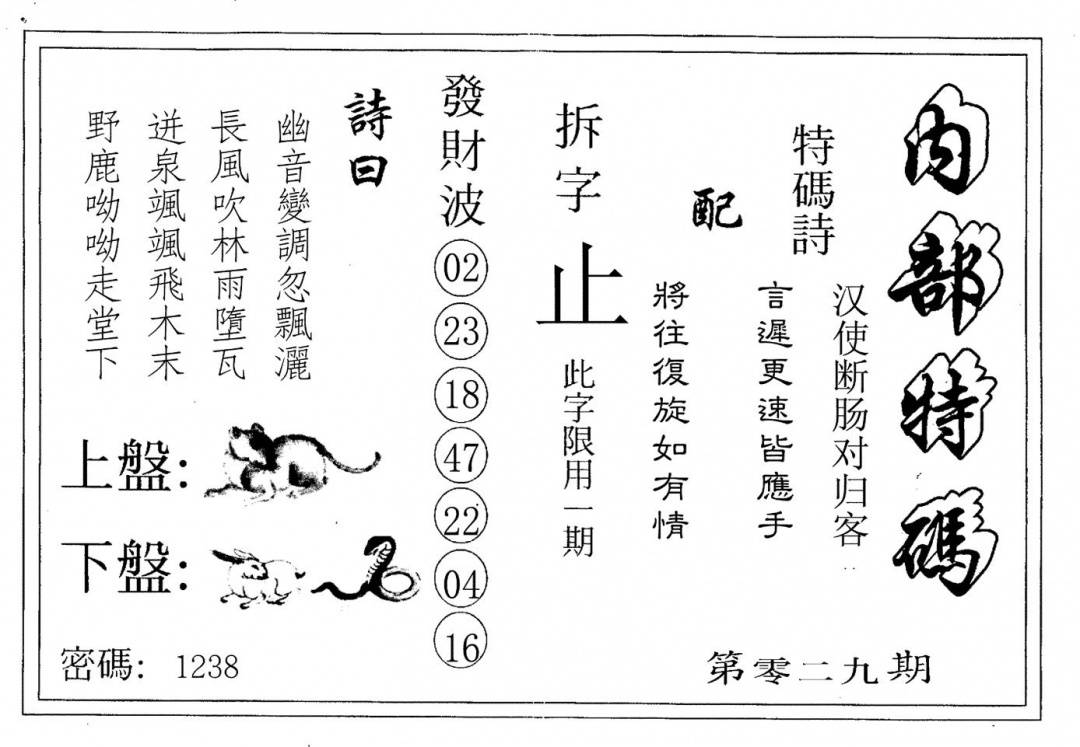 內部特碼
特碼詩
汉使断肠对归客
言遲更速皆應手
配
將往復旋如有情
拆字
止
此字限用一期
第零二九期
發財波
02
23
18
47
22
04
16
詩曰
幽音變調忽飄灑
長風吹林雨墮瓦
迸泉颯颯飛木末
野鹿呦呦走堂下
上盤：
下盤：
密碼： 1238